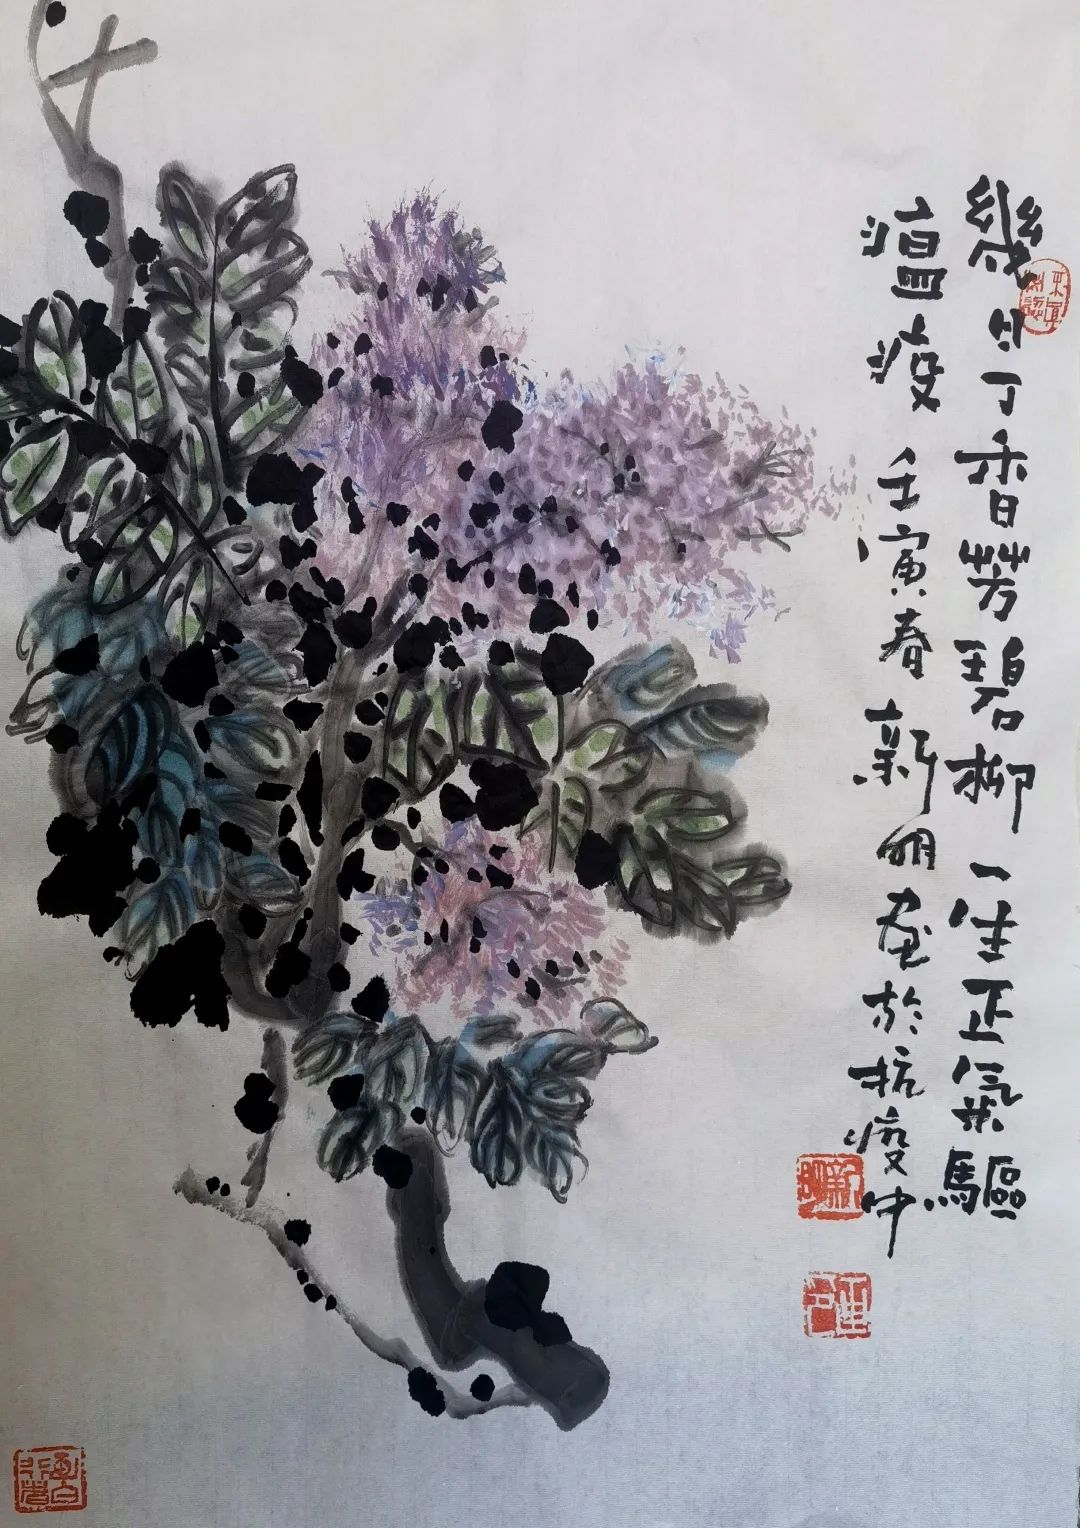 幾日丁香芳碧柳一生正氣驅
瘟疫壬寅春新明画於抗疫中